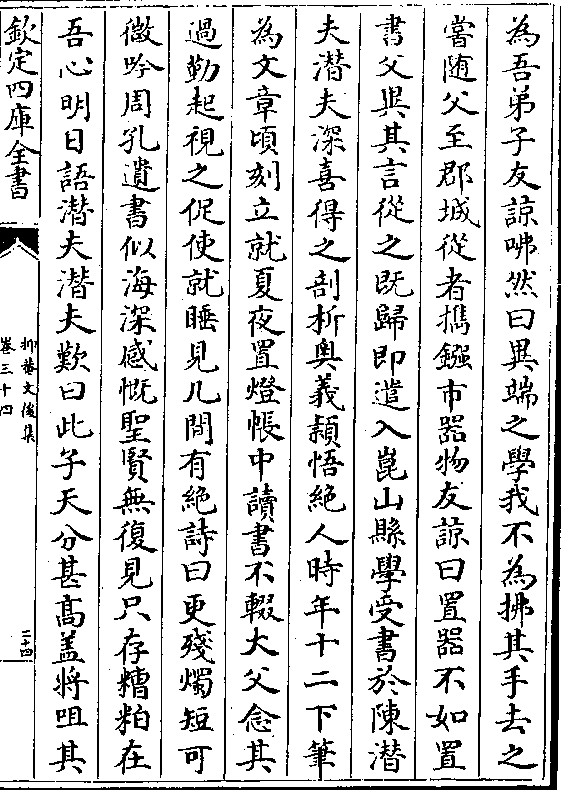 為吾弟子友諒咈然曰異端之學我不為拂其手去之
嘗随父至郡城從者擕鏹市器物友諒曰置器不如置
書父異其言從之既歸即遣入崑山縣學受書於陳潛
夫潛夫深喜得之剖析奥義頴悟絶人時年十二下筆
為文章頃刻立就夏夜置燈帳中讀書不輟大父念其
過勤起視之促使就睡見几間有絶詩曰更殘燭短可
微吟周孔遺書似海深感慨聖賢無復見只存糟粕在
吾心明日語潛夫潛夫歎曰此子天分甚髙蓋將咀其
欽定四庫全書
抑菴文後集
卷三十四
三十四